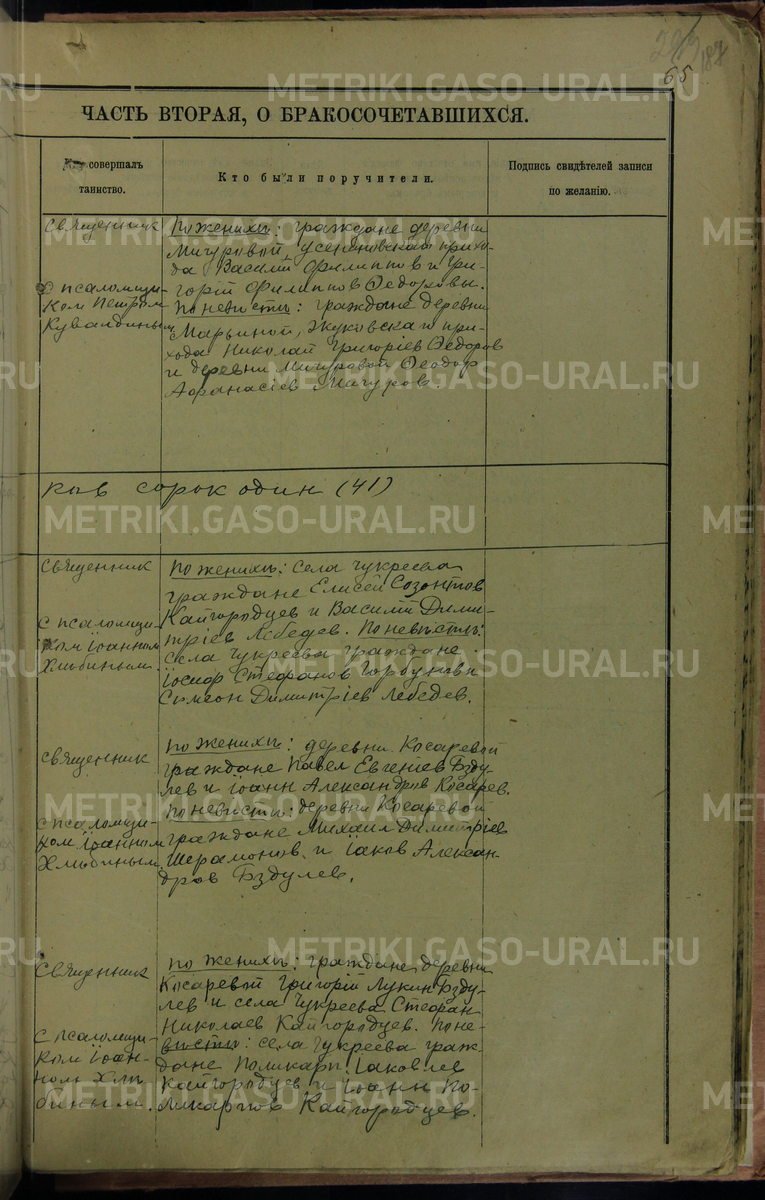 65
187
ЧАСТЬ ВТОРАЯ, О БРАКОСОЧЕТАВШИХСЯ.
совершалъ
таинство.
Кто были поручители.
Подпись свидѣтелей записи
по желанію.
Священник
с псаломщи-
ком Петром
Кувалдиным
По женихѣ: граждане деревни
Мичуровой, прихо-
да Василій Филиппов и Гри-
горій Филиппов Ѳедоровы.
По невѣстѣ: граждане деревни
Марьиной, Жуковскаго при-
хода Николай Григоріев Ѳедоров
и деревни Мичуровой Ѳеодор
Афанасіев Мичуров.
ков сорок один (41)
Священник
с псаломщи-
ком Іоанном
Хлѣбиным.
По женихѣ: села Чукреева
граждане Елисей Созонтов
Кайгородцев и Василій Дими-
тріев Лебедев. По невѣстѣ:
села Чукреева граждане
Іосиф Стефанов Горбунов и
Симеон Димитріев Лебедев.
Священник
с псаломщи-
ком Іоанном
Хлѣбиным
По женихѣ: деревни Косаревой
граждане Павел Евгеніев Бзду-
лев и Іоанн Александров Косарев.
По невѣстѣ: деревни Косаревой
граждане Михаил Димитріев
и Іаков Алексан-
дров Бздулев.
Священник
с псаломщи-
ком Іоан-
ном Хлѣ-
биным.
По женихѣ: граждане деревни
Косаревой Григорій Лукин Бзду-
лев и села Чукреева Стефан
Николаев Кайгородцев. По не-
вѣстѣ: села Чукреева граж-
дане Поликарп Іаковлев
Кайгородцев и Іоанн По-
ликарпов Кайгородцев.
METRIKI.GASO-URAL.RU